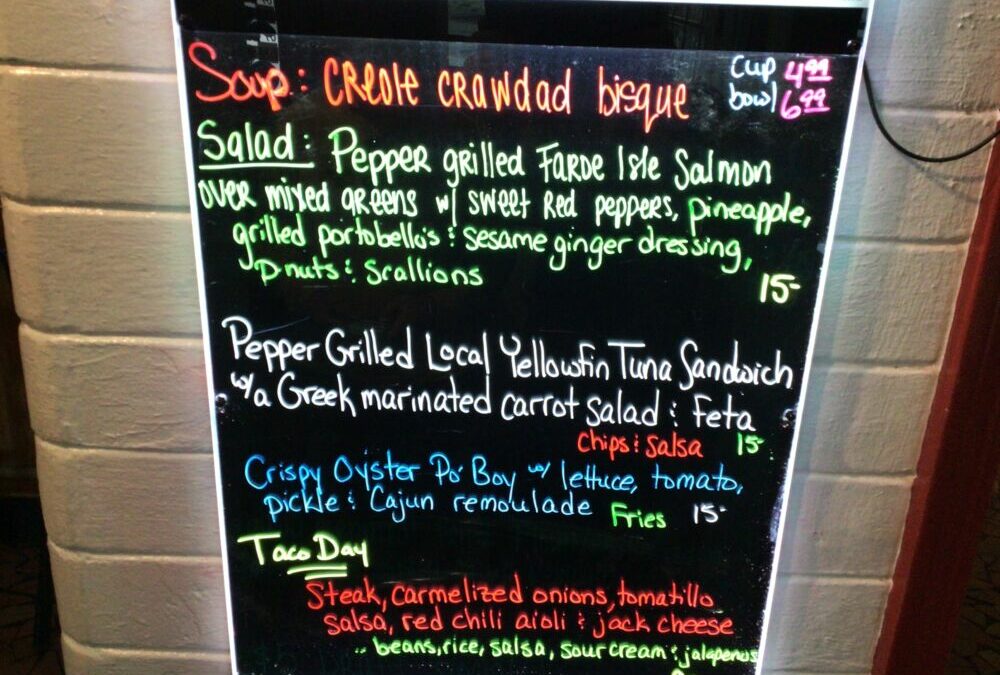 Soup: Creole crawdad bisque cup 4.99
bowl 6.99
Salad: Pepper grilled Faroe Isle Salmon
over mixed greens w/ sweet red peppers, pineapple,
grilled portobello's & sesame ginger dressing,
pnuts & scallions
15-
Pepper Grilled Local Yellowfin Tuna Sandwich
w/a Greek marinated carrot salad & Feta
chips & salsa 15-
Crispy Oyster Po' Boy w/ lettuce, tomato,
pickle & Cajun remoulade Fries 15-
Taco Day
Steak, carmelized onions, tomatillo
salsa, red chili aioli & jack cheese
.. beans, rice, salsa, sour cream & jalapenos